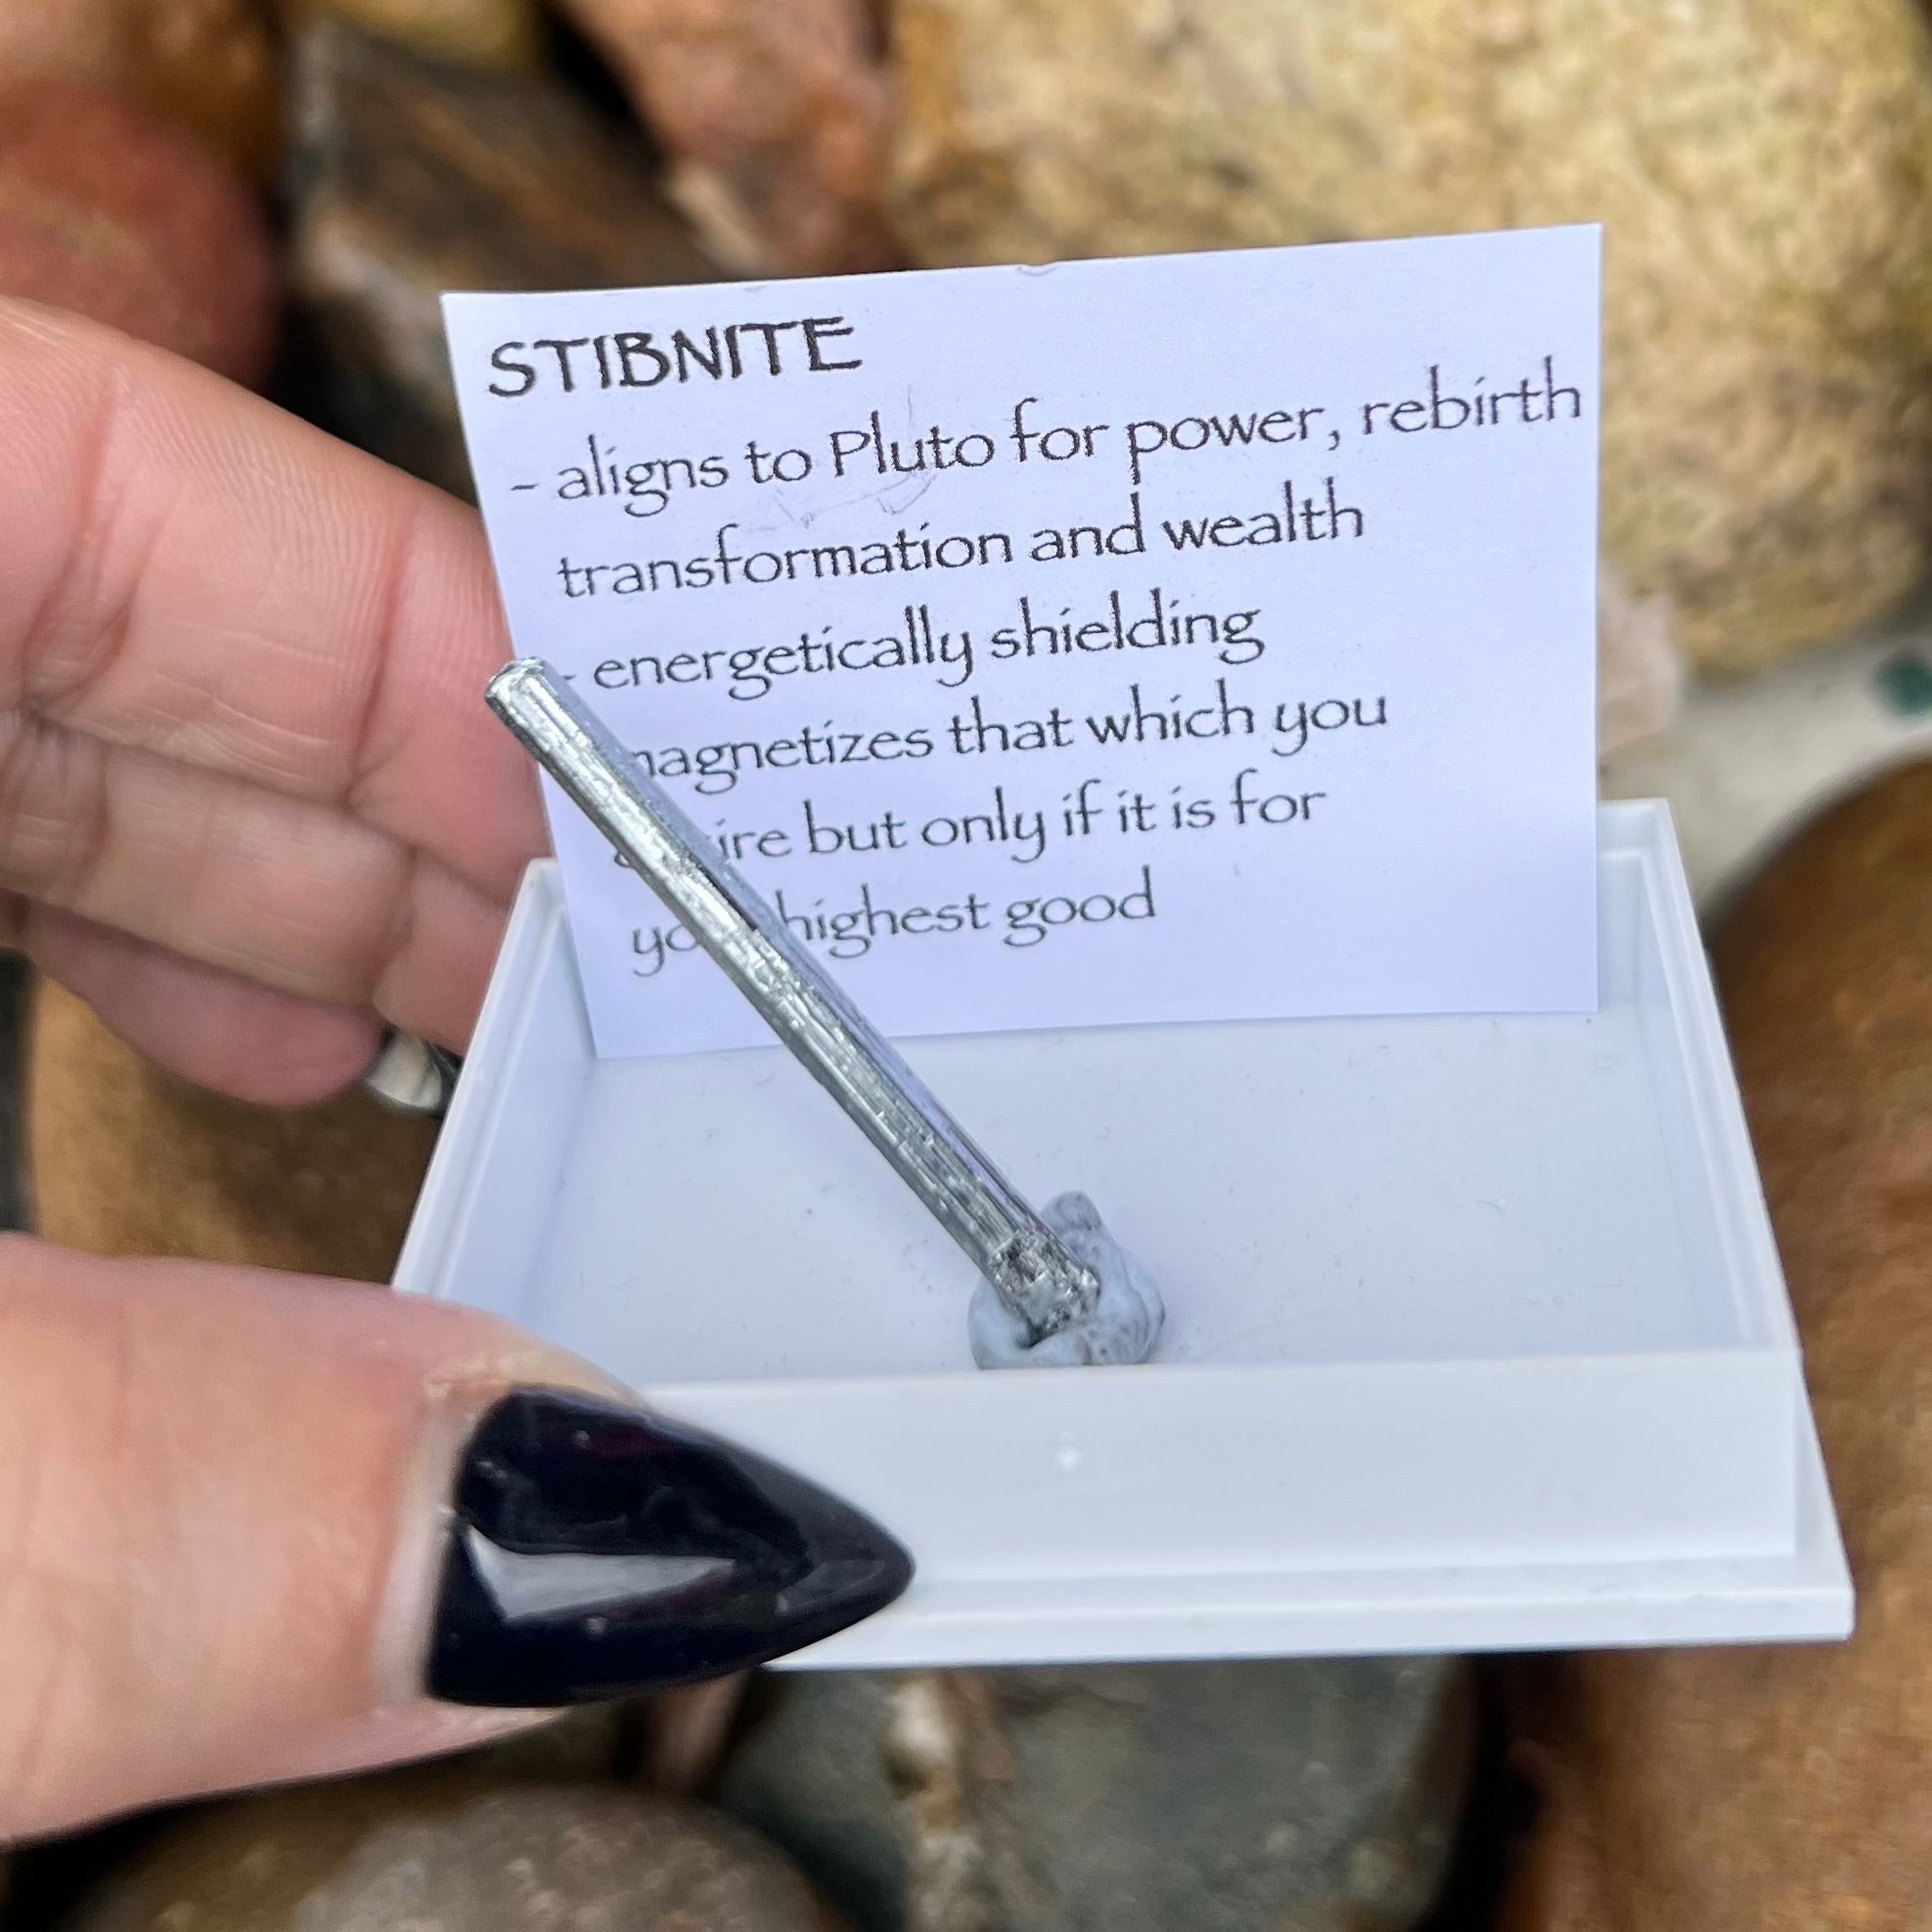 STIBNITE
- aligns to Pluto for power, rebirth
transformation and wealth
- energetically shielding
that which you
but only if it is for
highest good